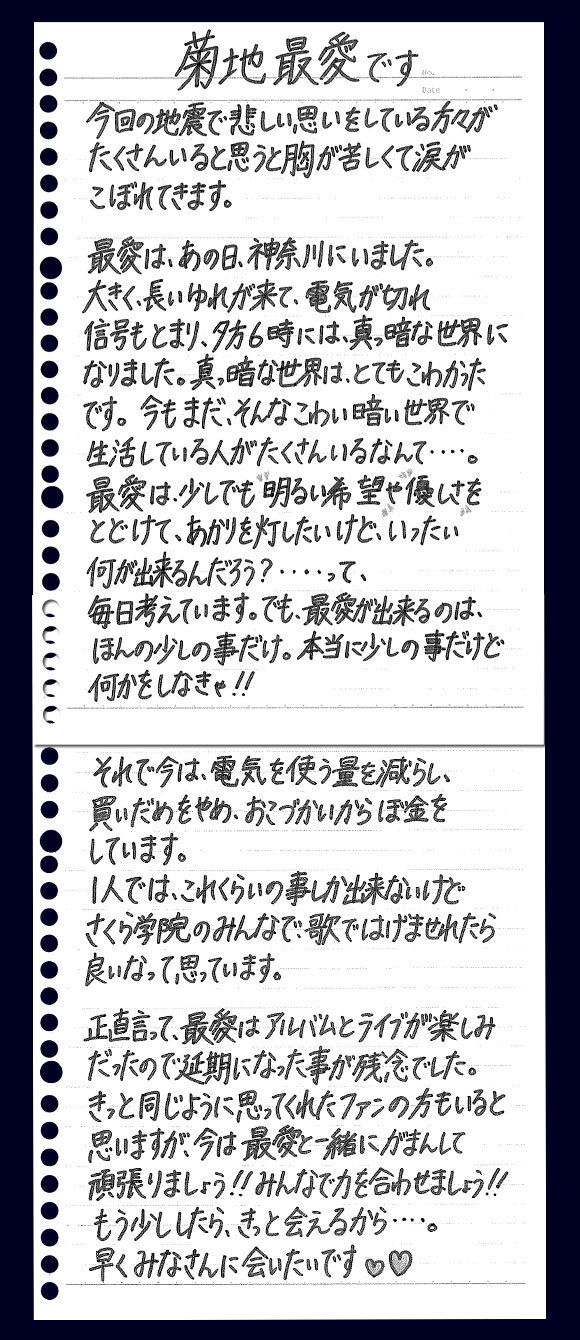 菊地最愛です
No.
Date
今回の地震で悲しい思いをしている方々が
たくさんいると思うと胸が苦しくて涙が
こぼれてきます。
最愛は、あの日、神奈川にいました。
大きく、長いゆれが来て、電気が切れ
信号もとまり、夕方6時には、真っ暗な世界に
なりました。真っ暗な世界は、とてもこわかった
です。今もまだ、そんなこわい暗い世界で
生活している人がたくさんいるなんて‥‥。
最愛は、少しでも明るい希望や優しさを
とどけて、あかりを灯したいけど、いったい
何が出来るんだろう?‥‥って、
毎日考えています。でも、最愛が出来るのは、
ほんの少しの事だけ。本当に少しの事だけど
何かをしなきゃ!!
それで今は、電気を使う量を減らし、
買いだめをやめ、おこづかいからぼ金を
しています。
1人では、これくらいの事しか出来ないけど
さくら学院のみんなで、歌ではげませれたら
良いなって思っています。
正直言って、最愛はアルバムとライブが楽しみ
だったので延期になった事が残念でした。
きっと同じように思ってくれたファンの方もいると
思いますが、今は最愛と一緒にがまんして
頑張りましょう!!みんなで力を合わせましょう!!
もう少ししたら、きっと会えるから‥‥。
早くみなさんに会いたいです♡♡